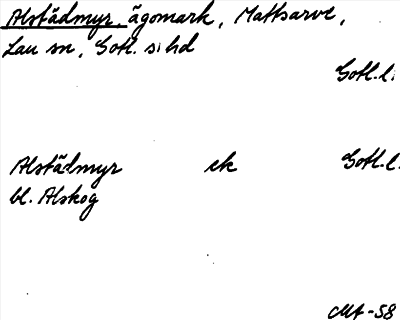 Alstädmyr, ägomark, Mattsarve,
Lau sn, Gotl. s. hd
Gotl. l.
Alstädmyr ek Gotl. l.
bl. Alskog